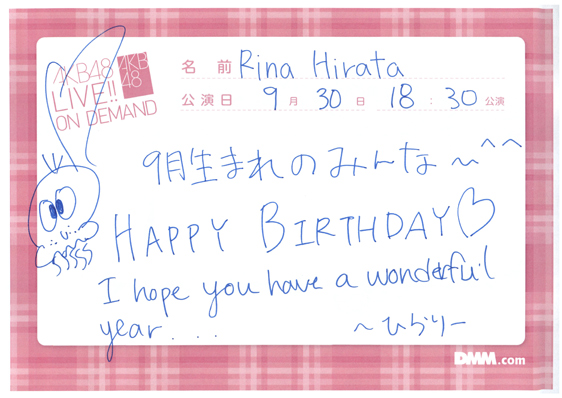 AKB48
LIVE!!
ON DEMAND
AKB
48
名 前 Rina Hirata
公演日 9月 30日 18:30公演
9月生まれのみんな~^^
HAPPY BIRTHDAY♡
I hope you have a wonderful
year....
〜ひらりー
DMM.com